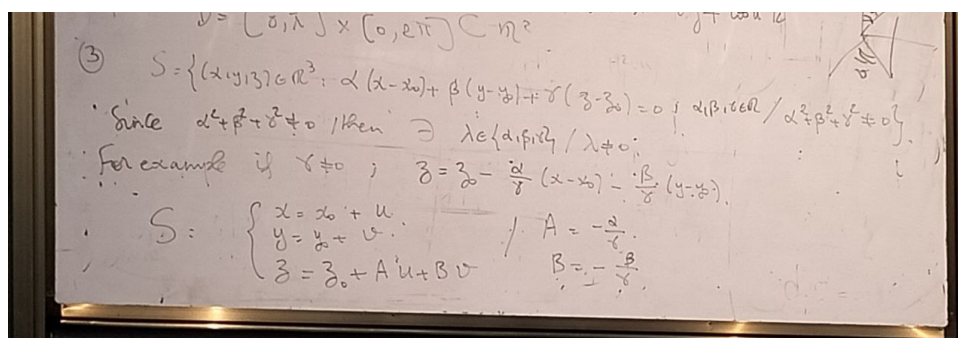 D = [0, π] × [0, 2π] ⊂ ℝ²
③
S = {(x,y,z) ∈ ℝ³ : α(x-x₀) + β(y-y₀) + γ(z-z₀) = 0 ; α,β,γ∈ℝ / α²+β²+γ² ≠ 0}.
Since α²+β²+γ² ≠ 0 , then ∃ λ∈{α,β,γ} / λ≠0 ;
For example if γ ≠ 0 ; z = z₀ - α/γ (x-x₀) - β/γ (y-y₀).
S : { x = x₀ + u / A = - α/γ
y = y₀ + v
z = z₀ + A u + B v B = - β/γ